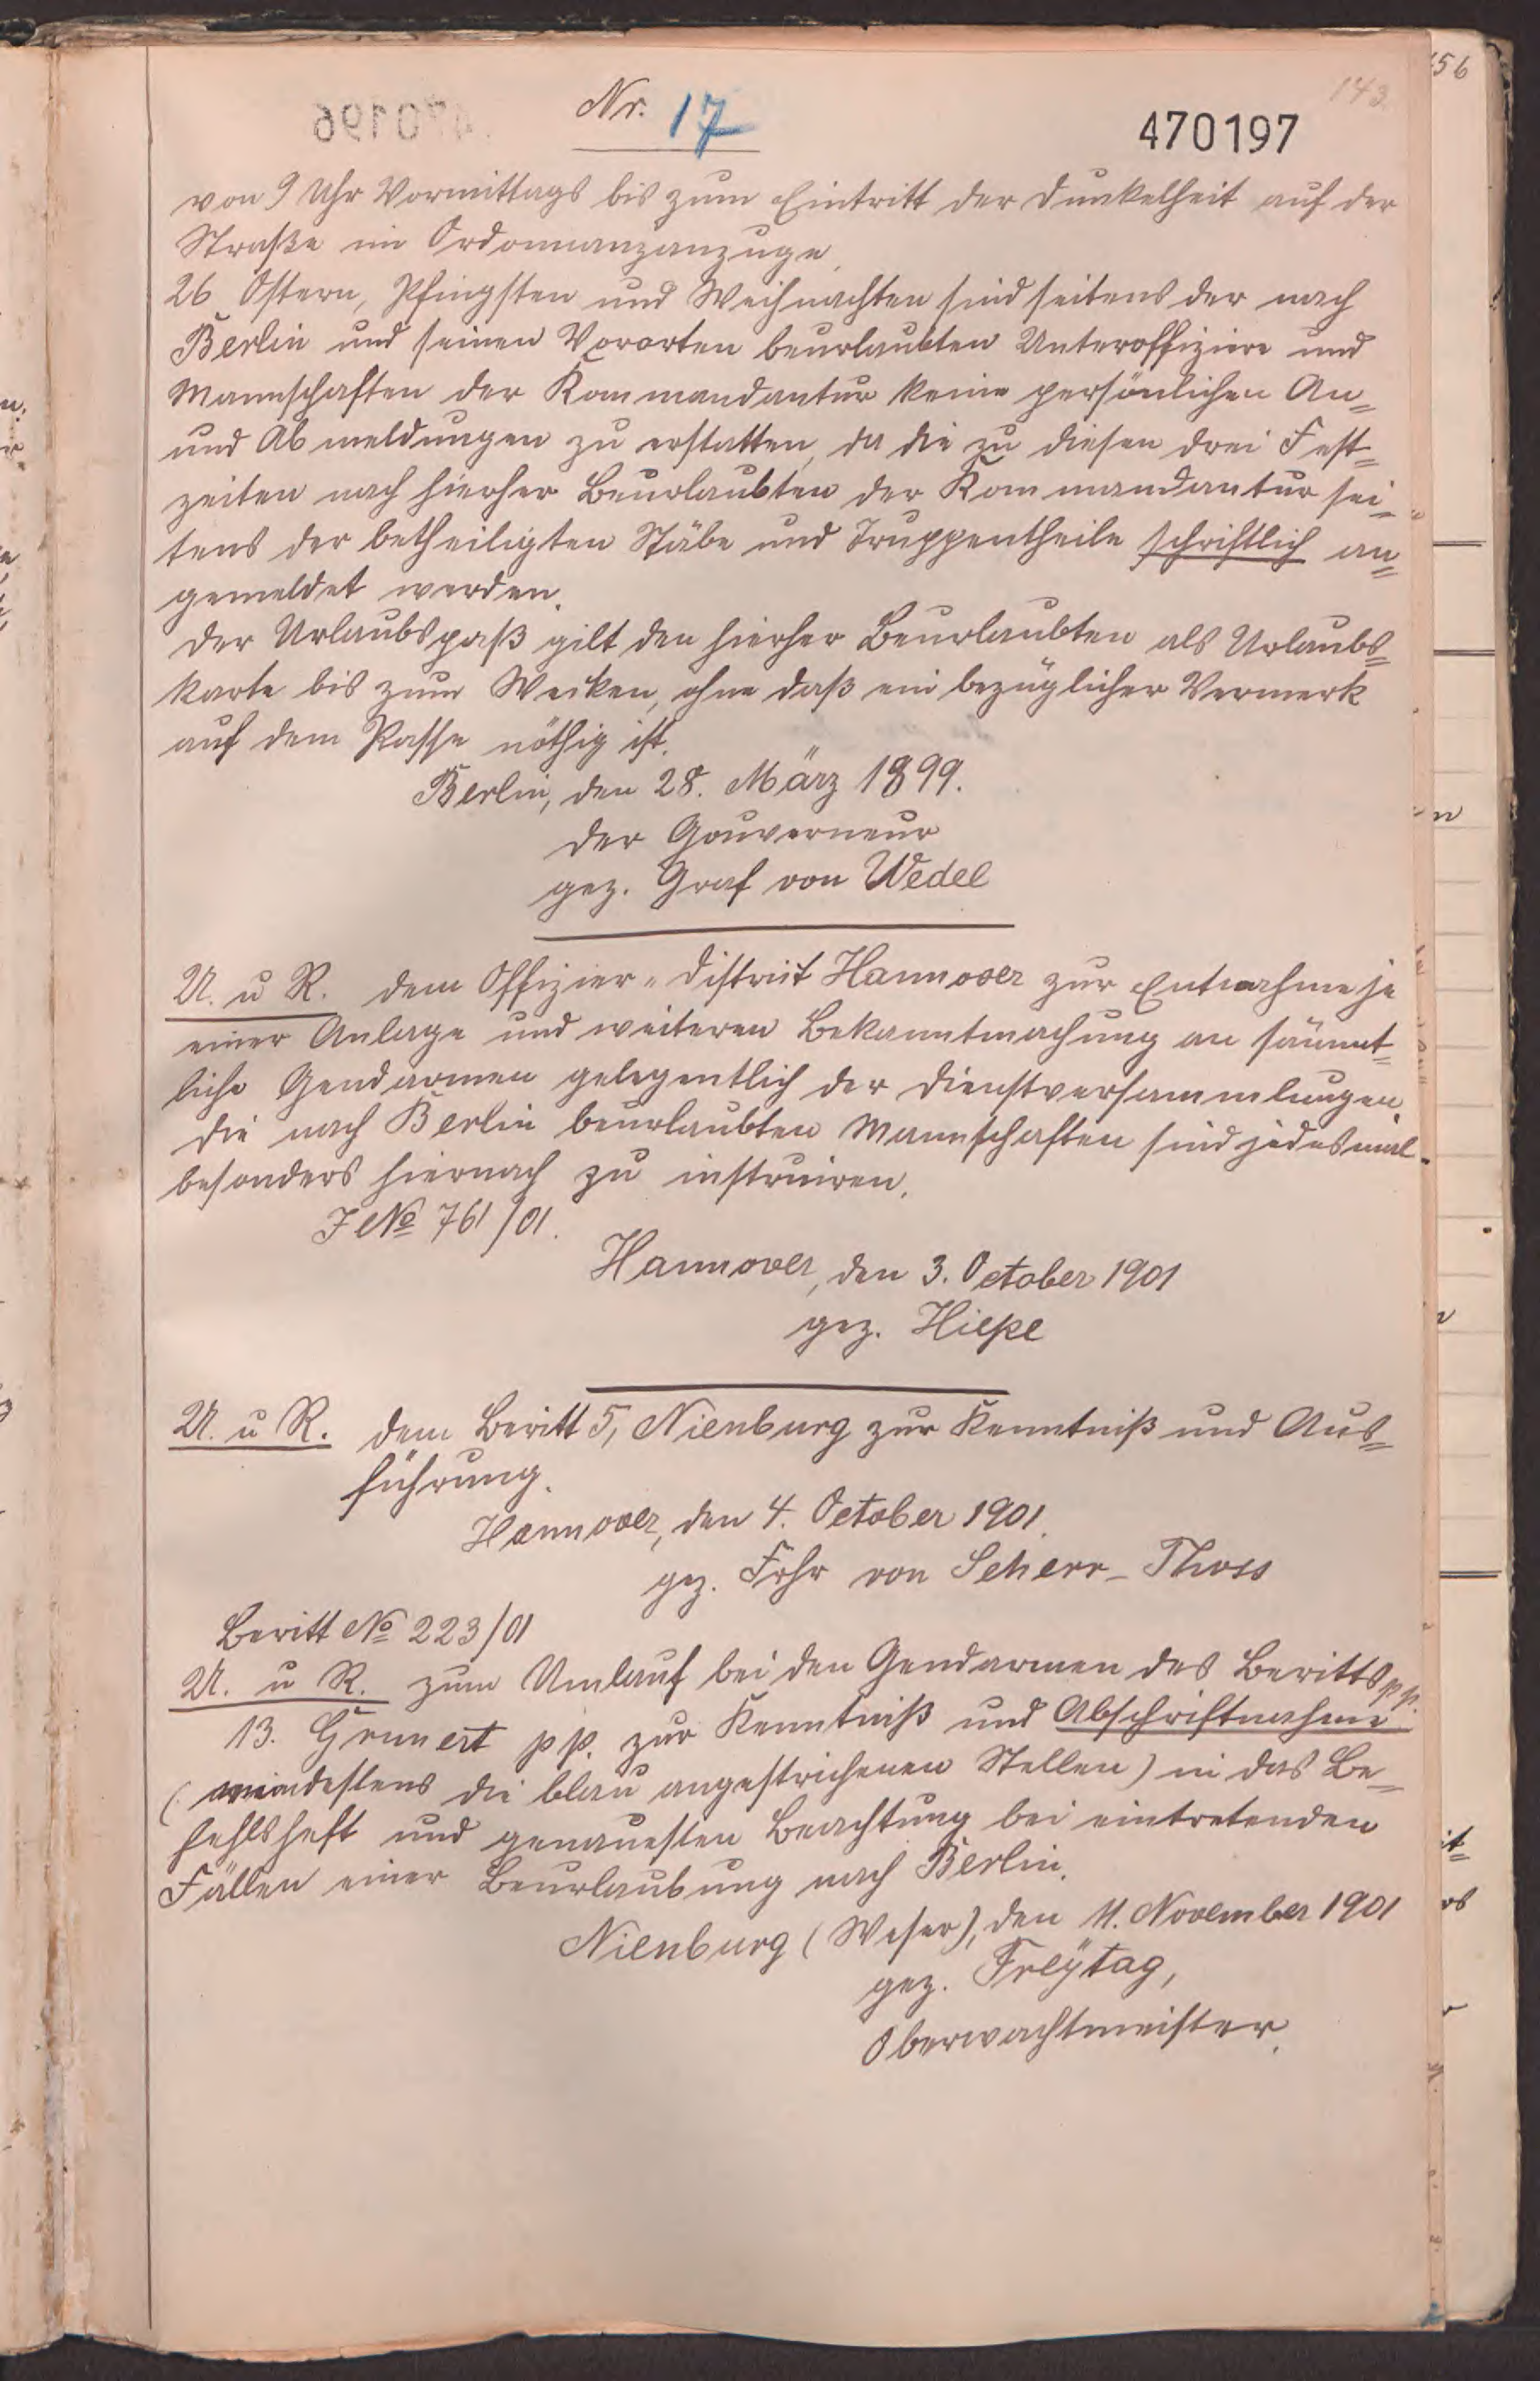 143
Nr. 17
470197
von 9 Uhr Vormittags bis zum Eintritt der Dunkelheit auf der
Straße im Ordonnanzanzuge.
26 Ostern, Pfingsten und Weihnachten sind seitens der nach
Berlin und seinen Vororten beurlaubten Unteroffiziere und
Mannschaften der Kommandantur keine persönlichen An=
und Abmeldungen zu erstatten, da die zu diesen drei Fest=
zeiten nach hierher Beurlaubten der Kommandantur sei=
tens der betheiligten Stäbe und Truppentheile schriftlich an=
gemeldet werden.
Der Urlaubspaß gilt den hierher Beurlaubten als Urlaubs=
karte bis zum Wecken, ohne daß ein bezüglicher Vermerk
auf dem Passe nöthig ist.
Berlin, den 28. März 1899.
Der Gouverneur
gez. Graf von Wedel
U. u R. dem Offizier-Distrikt Hannover zur Entnahme je
einer Anlage und weiteren Bekanntmachung an sämmt=
liche Gendarmen gelegentlich der Dienstversammlungen.
Die nach Berlin beurlaubten Mannschaften sind jedesmal
besonders hiernach zu instruiren.
J No 761/01.
Hannover, den 3. October 1901
gez. Hiepe
U. u R. dem Beritt 5, Nienburg zur Kenntniß und Aus=
führung.
Hannover, den 4. October 1901.
gez. Frhr von Scherr-Thoss
Beritt No 223/01
U. u R. zum Umlauf bei den Gendarmen des Beritts pp.
13. Grunert pp. zur Kenntniß und Abschriftnahme
(mindestens die blau angestrichenen Stellen) in das Be=
fehlsheft und genauesten Beachtung bei eintretenden
Fällen einer Beurlaubung nach Berlin.
Nienburg (Weser), den 11. November 1901
gez. Freÿtag,
Oberwachtmeister.